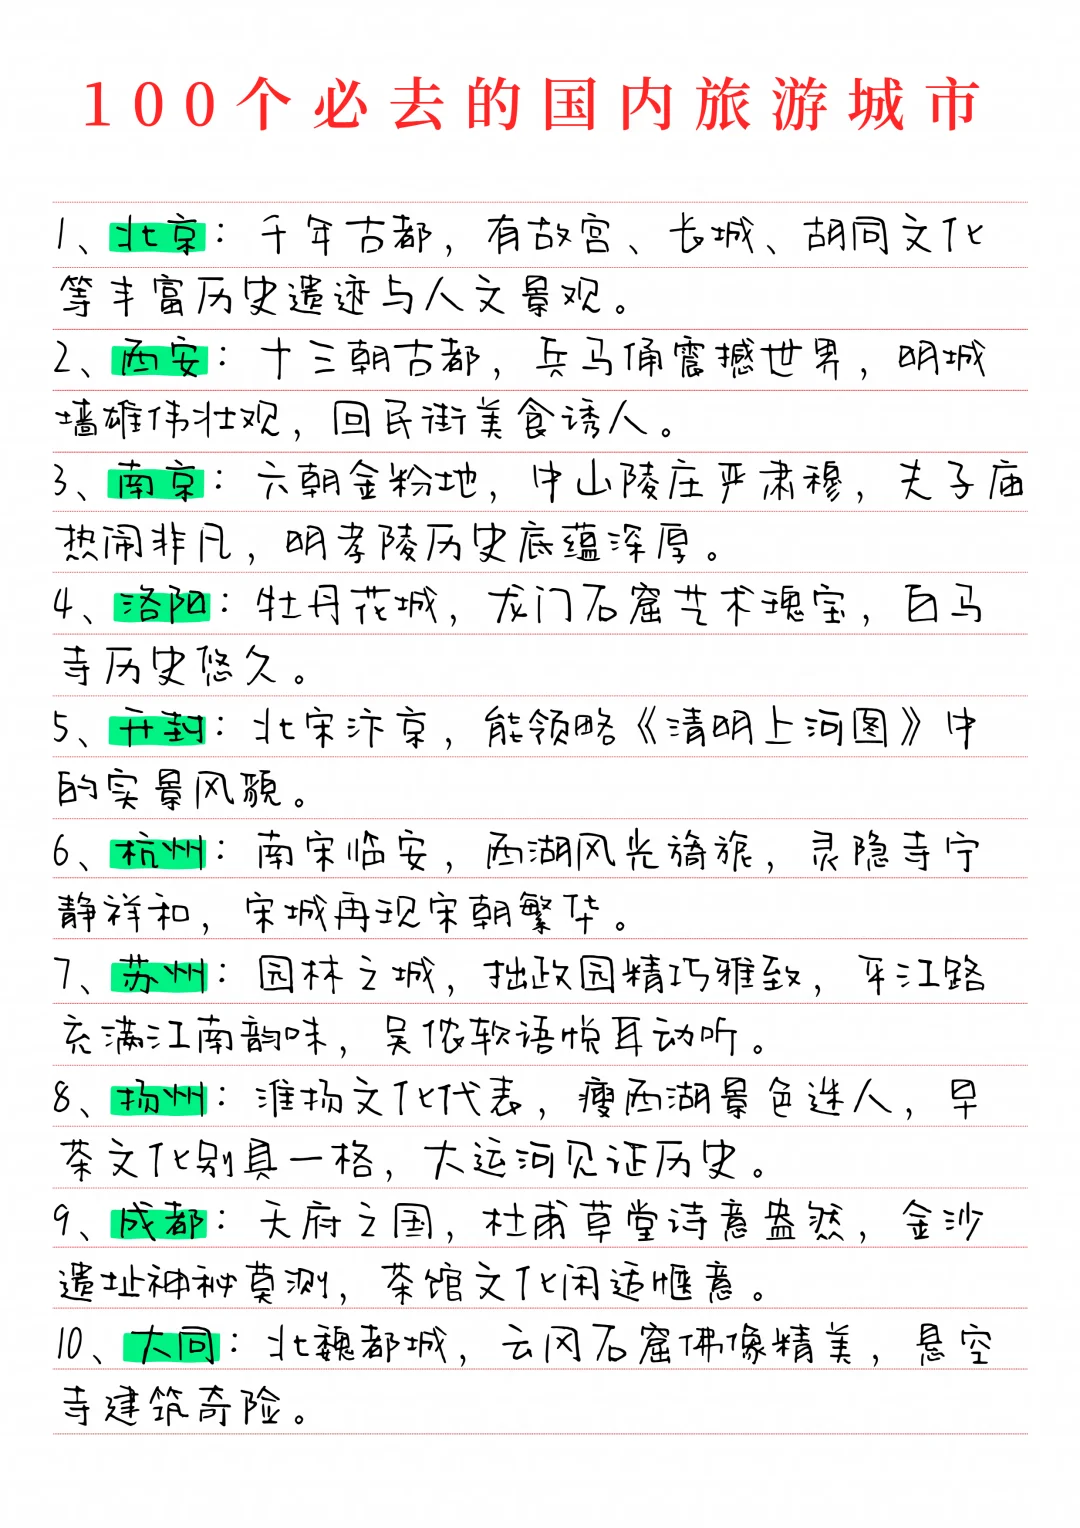 100个必去的国内旅游城市
1、北京：千年古都，有故宫、长城、胡同文化
等丰富历史遗迹与人文景观。
2、西安：十三朝古都，兵马俑震撼世界，明城
墙雄伟壮观，回民街美食诱人。
3、南京：六朝金粉地，中山陵庄严肃穆，夫子庙
热闹非凡，明孝陵历史底蕴深厚。
4、洛阳：牡丹花城，龙门石窟艺术瑰宝，白马
寺历史悠久。
5、开封：北宋汴京，能领略《清明上河图》中
的实景风貌。
6、杭州：南宋临安，西湖风光旖旎，灵隐寺宁
静祥和，宋城再现宋朝繁华。
7、苏州：园林之城，拙政园精巧雅致，平江路
充满江南韵味，吴侬软语悦耳动听。
8、扬州：淮扬文化代表，瘦西湖景色迷人，早
茶文化别具一格，大运河见证历史。
9、成都：天府之国，杜甫草堂诗意盎然，金沙
遗址神秘莫测，茶馆文化闲适惬意。
10、大同：北魏都城，云冈石窟佛像精美，悬空
寺建筑奇险。